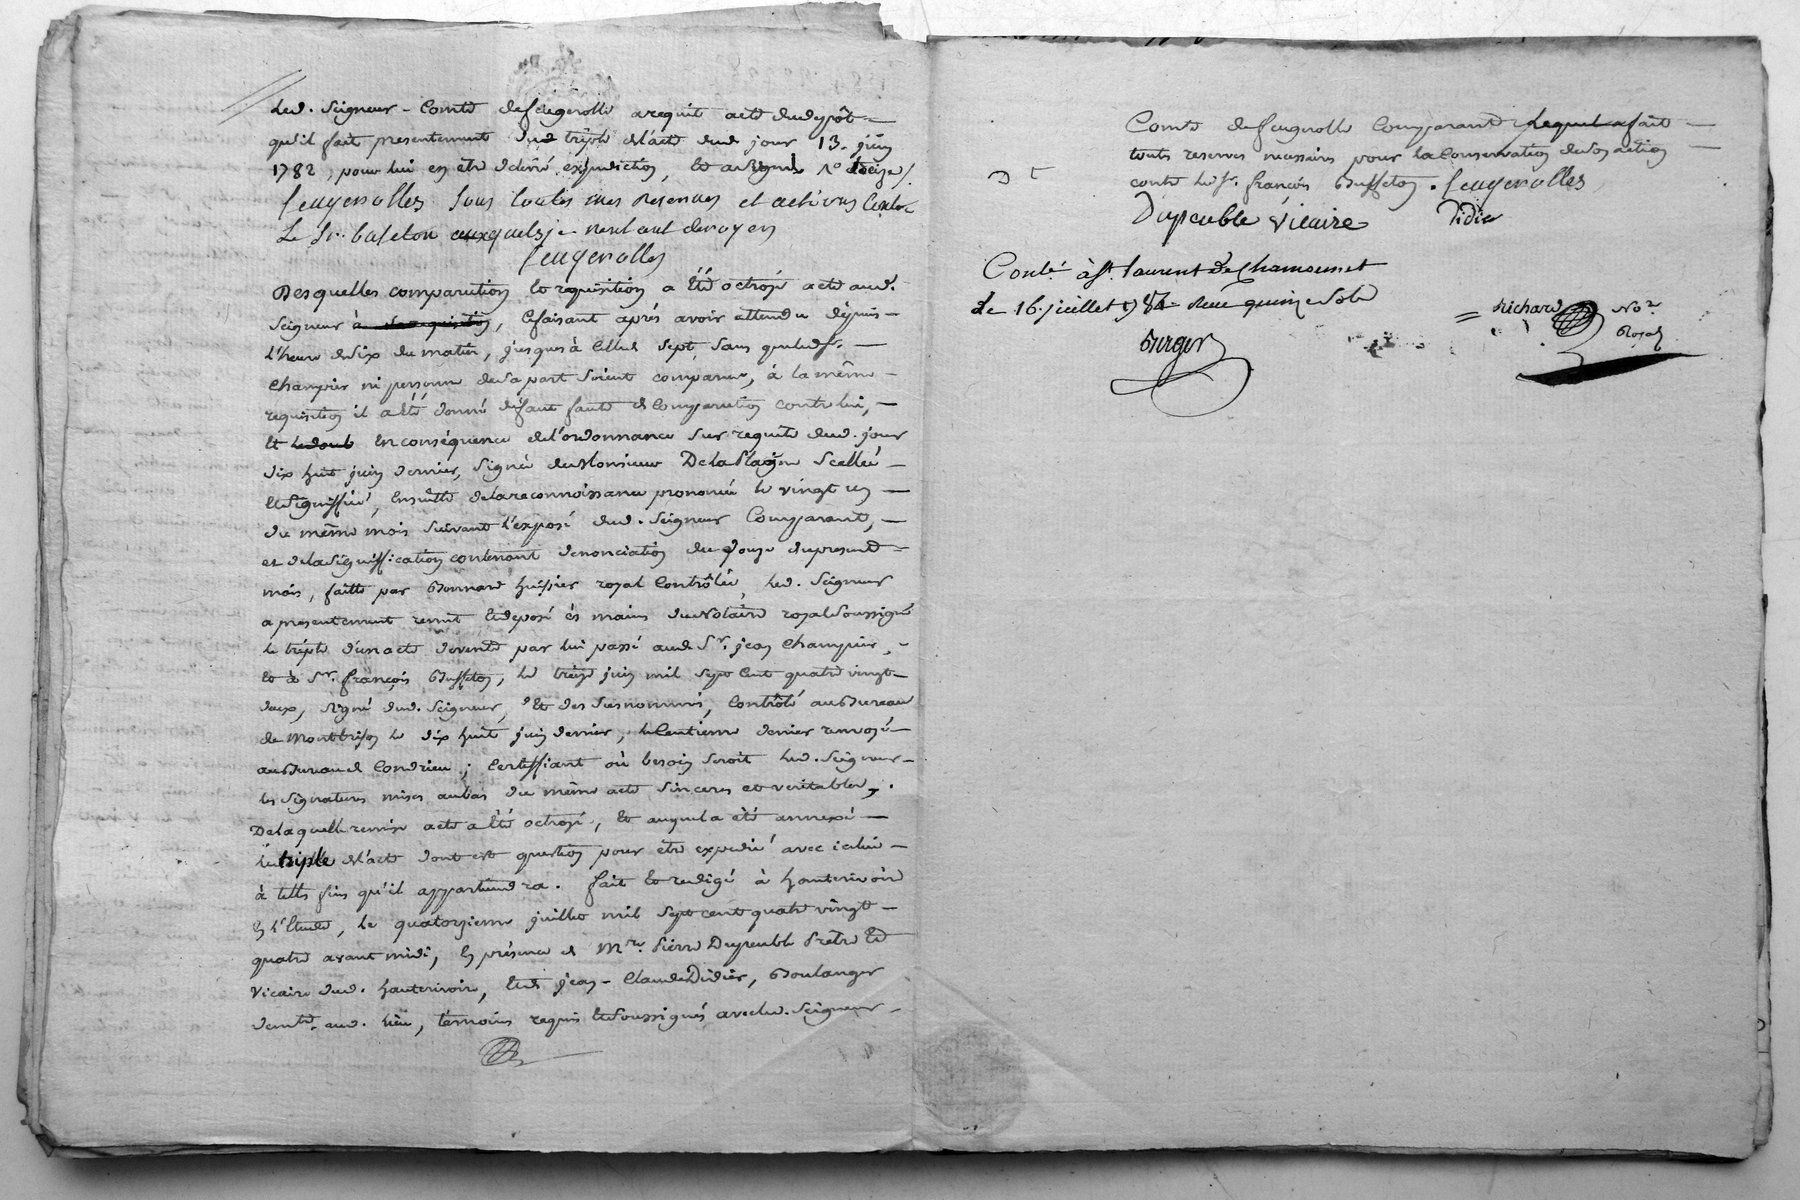 Led. Seigneur Comte defeugerolle a requit acte dudepôt
qu'il fait presentement dud. triple del'acte dud. jour 13. juin
1782, pour lui en être délivré expedition, et a signé
feugerolles sous toutes mes reserves et actions contre
Le Sr. bufeton auxquels je n'entend deroger
feugerolles
Desquelles comparution et requisition a été octroyé acte aud.
Seigneur, cefaisant après avoir attendu dépuis
l'heure desix du matin, jusques à celle de sept, sans que led. Sr.
Champier ni personne desapart soient comparus, à la même
requisition il a été donné défaut faute de comparution contre lui,
Et En conséquence del'ordonnance sur requete dud. jour
dix huit juin dernier, signée deMonsieur DelaPlagne Scellée
etSignifiée, ensuitte delareconnoissance prononcée le vingt un
du même mois suivant l'exposé dud. Seigneur Comparant,
et delaSignification contenant denonciation du douze dupresent
mois, faitte par Bonnard huissier royal Contrôlée, led. Seigneur
a presentement remit etdeposé és mains duNotaire royal Soussigné
le triple d'un acte devente par lui passé aud. Sr. jean Champier,
et à Sr. françois Buffeton, le treize juin mil sept cent quatre vingt
deux, signé dud. Seigneur, et des susnommés, Contrôlé auBureau
de Montbrison le dix huit juin dernier, leCentieme denier renvoyé
auBureau de Condrieu; Certiffiant où besoin seroit led. Seigneur
les Signatures mises aubas du même acte sinceres et veritables,
Delaquelle remise acte a été octroyé, et auquel a été annexé
le triple del'acte dont est question pour être expedié avec icelui
à telles fins qu'il appartiendra. fait et redigé à hauterivoire
En l'Etude, le quatorzieme juillet mil sept cent quatre vingt
quatre avant midi, En présence de Mre. Pierre Dupeuble Prêtre et
Vicaire dud. hauterivoire, et de jean-Claude Didier, Boulanger
demt. aud. lieu, témoins requis etSoussignés avecled. Seigneur
Comte defeugerolle Comparant Lequel afait
toute reserves necessaires pour laConservation deson action
contre led. Sr. françois Buffeton. feugerolles
Dupeuble Vicaire Didier
Conlé. à St. laurent de Chamousset
le 16. juillet 1784 Reçu quinze Sols
Berger
Richard Nore.
Royal